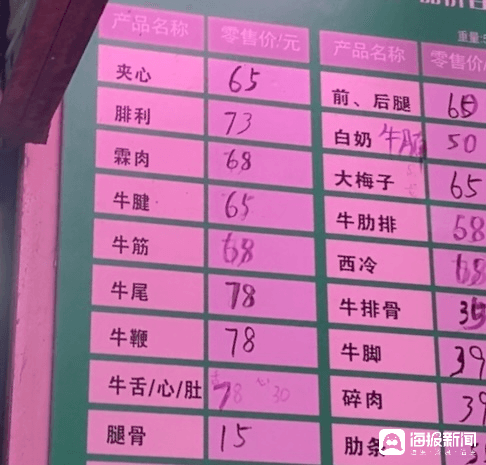 产品名称 零售价/元
夹心 65
腓利 73
霖肉 68
牛腱 65
牛筋 68
牛尾 78
牛鞭 78
牛舌/心/肚 78 心 30
腿骨 15
重量:
产品名称 零售价/
前、后腿 65
白奶 牛腩 50
大梅子 65
牛肋排 68
西冷 68
牛排骨 35
牛脚 39
碎肉 39
肋条
海报新闻